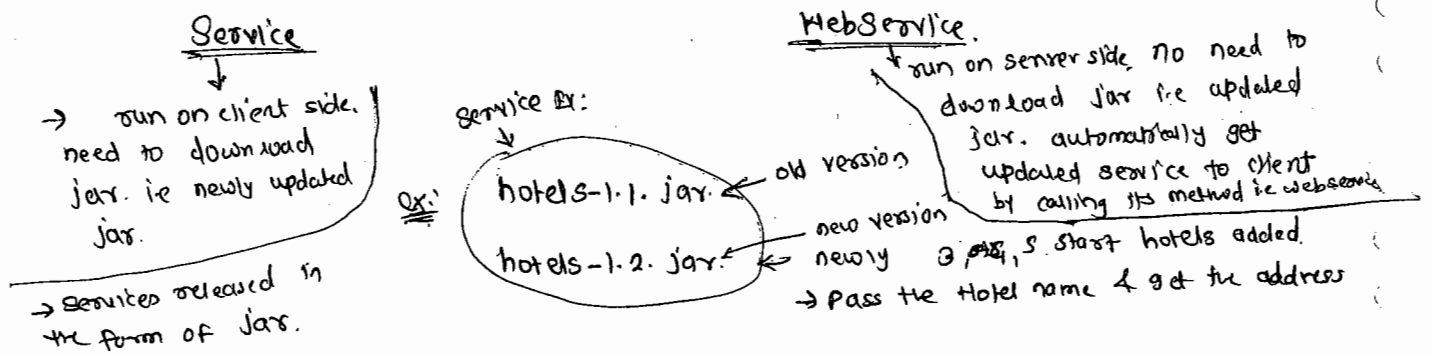 Service
→ run on client side.
need to download
jar. i.e newly updated
jar.
→ services released in
the form of jar.
Service Ex:
Ex:
hotels-1.1. jar. ← old version
hotels-1.2. jar. ← new version
← newly 3, 5 start hotels added.
→ Pass the Hotel name & get the address
WebService.
run on server side, no need to
download jar i.e updated
jar. automatically get
updated service to client
by calling its method i.e webservice